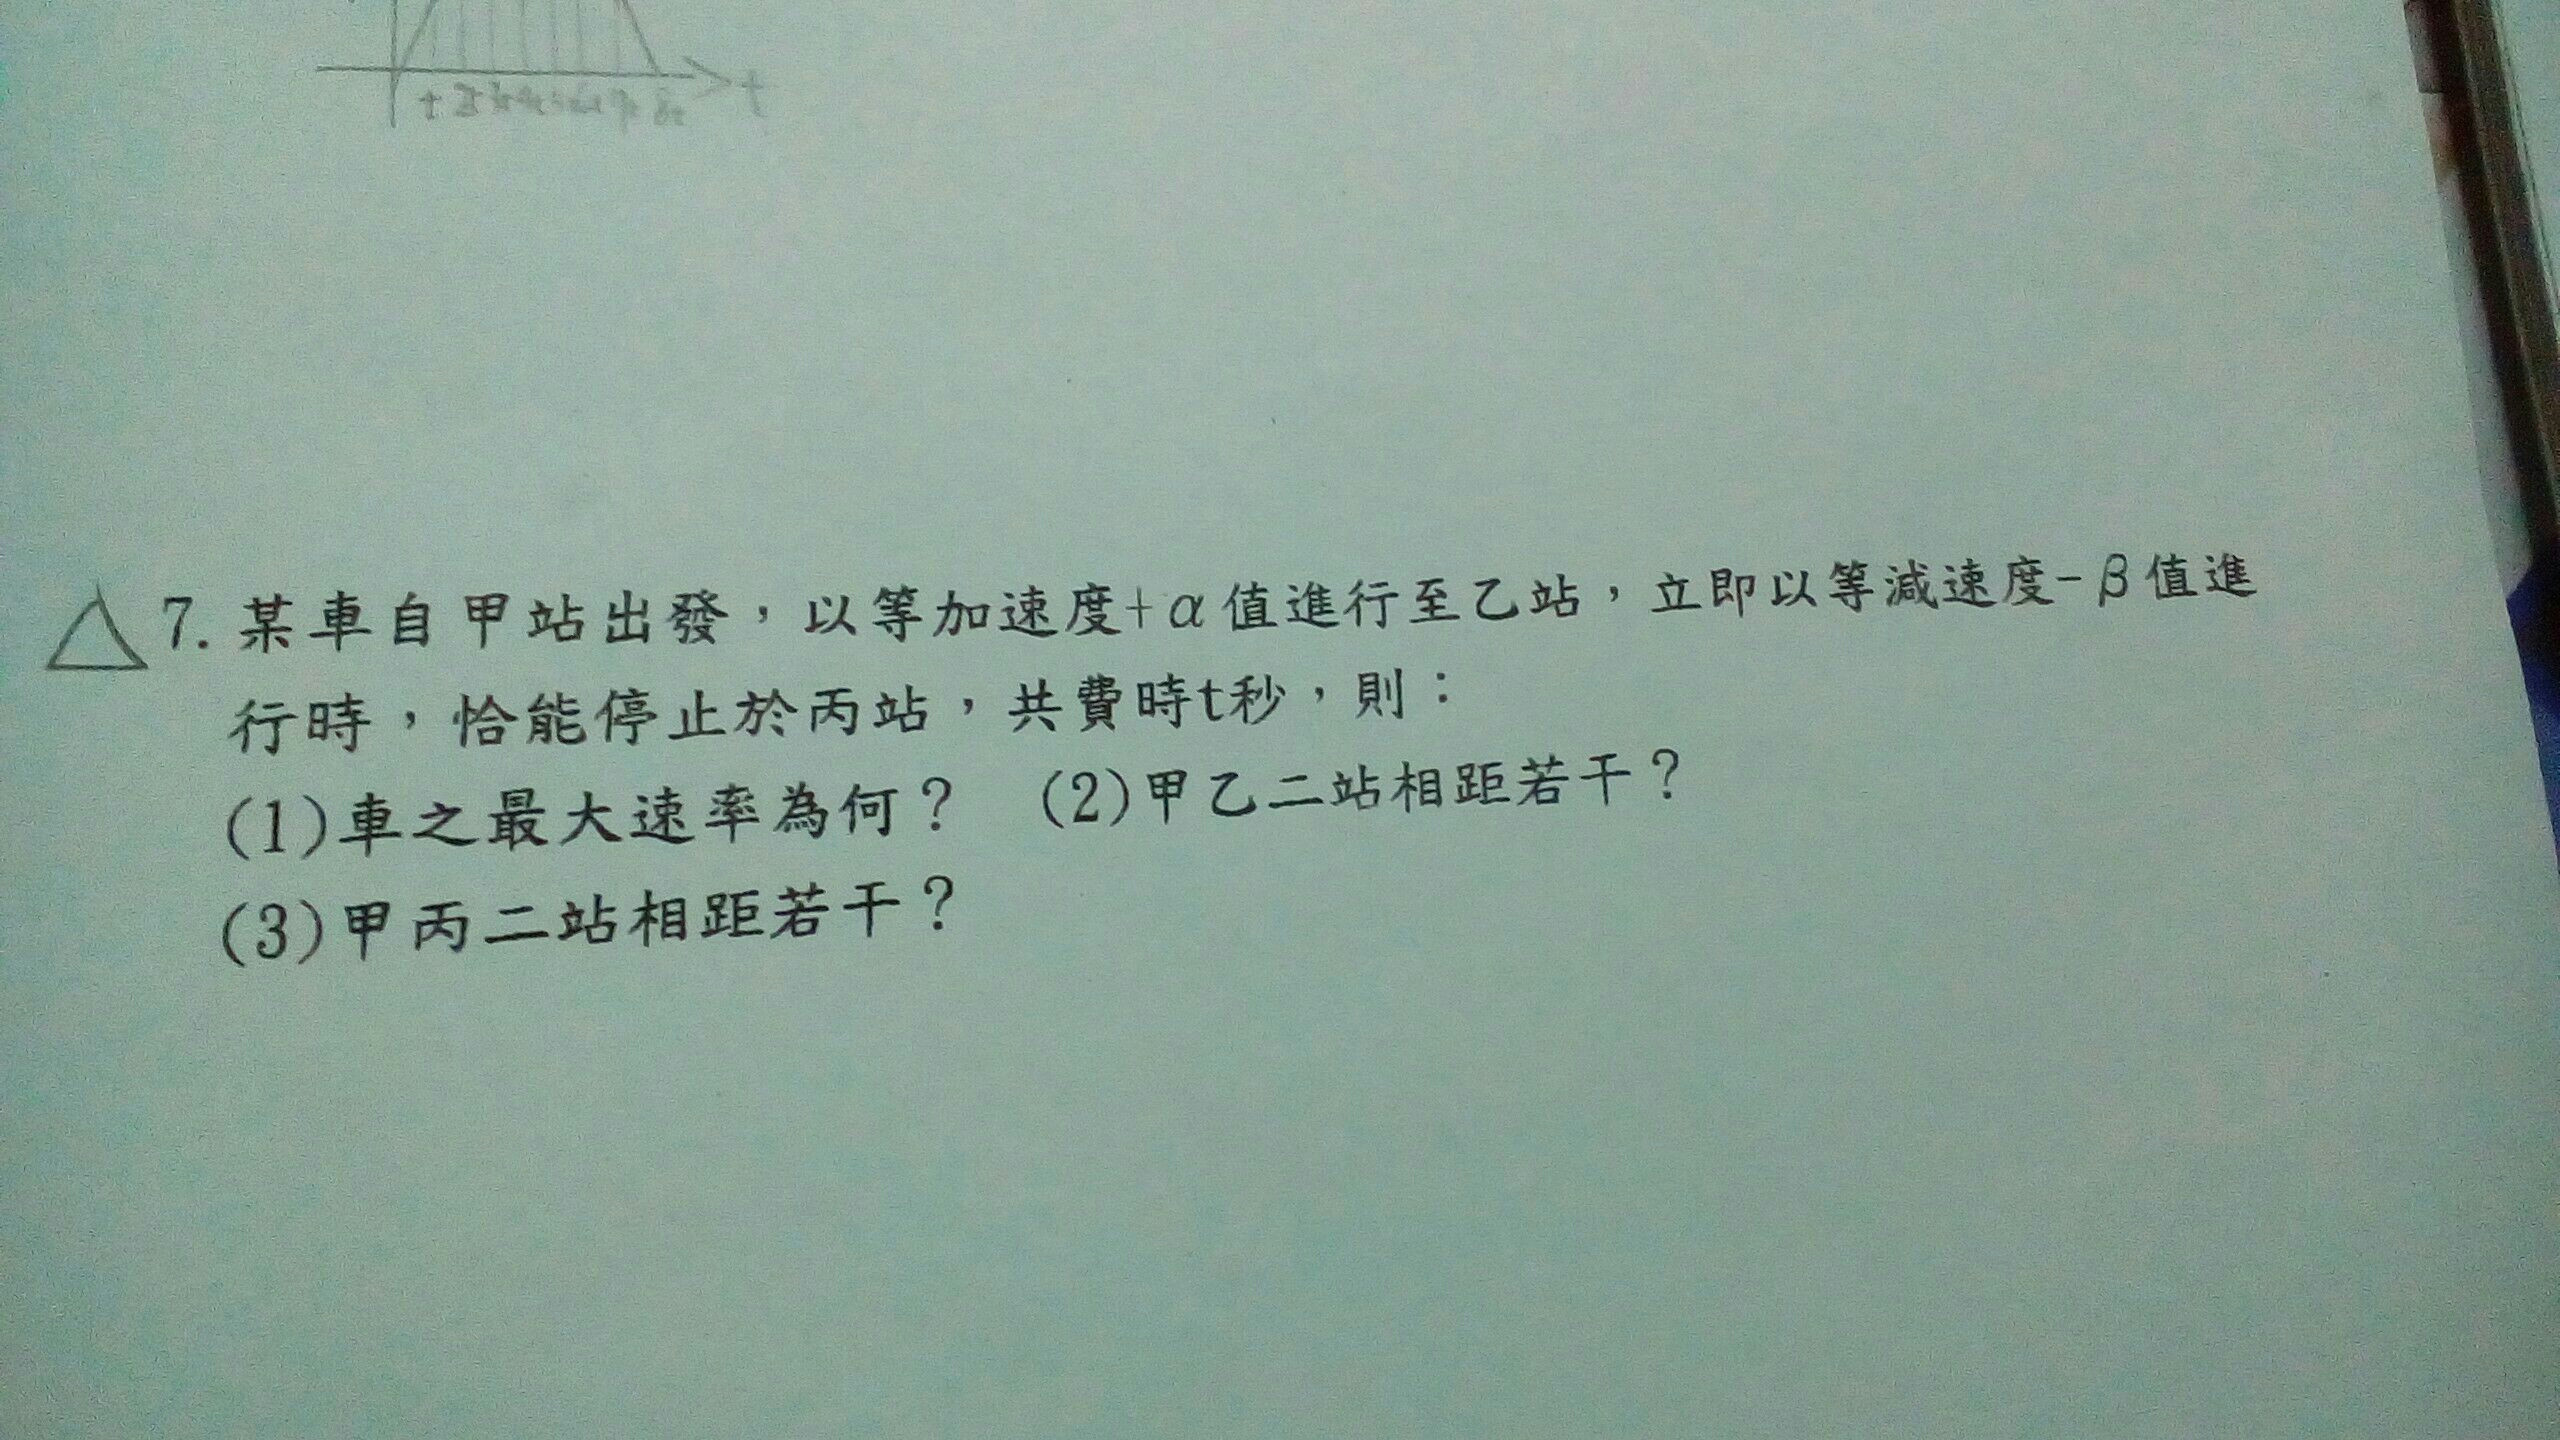 t
7. 某車自甲站出發，以等加速度+α值進行至乙站，立即以等減速度-β值進
行時，恰能停止於丙站，共費時t秒，則：
(1)車之最大速率為何？ (2)甲乙二站相距若干？
(3)甲丙二站相距若干？